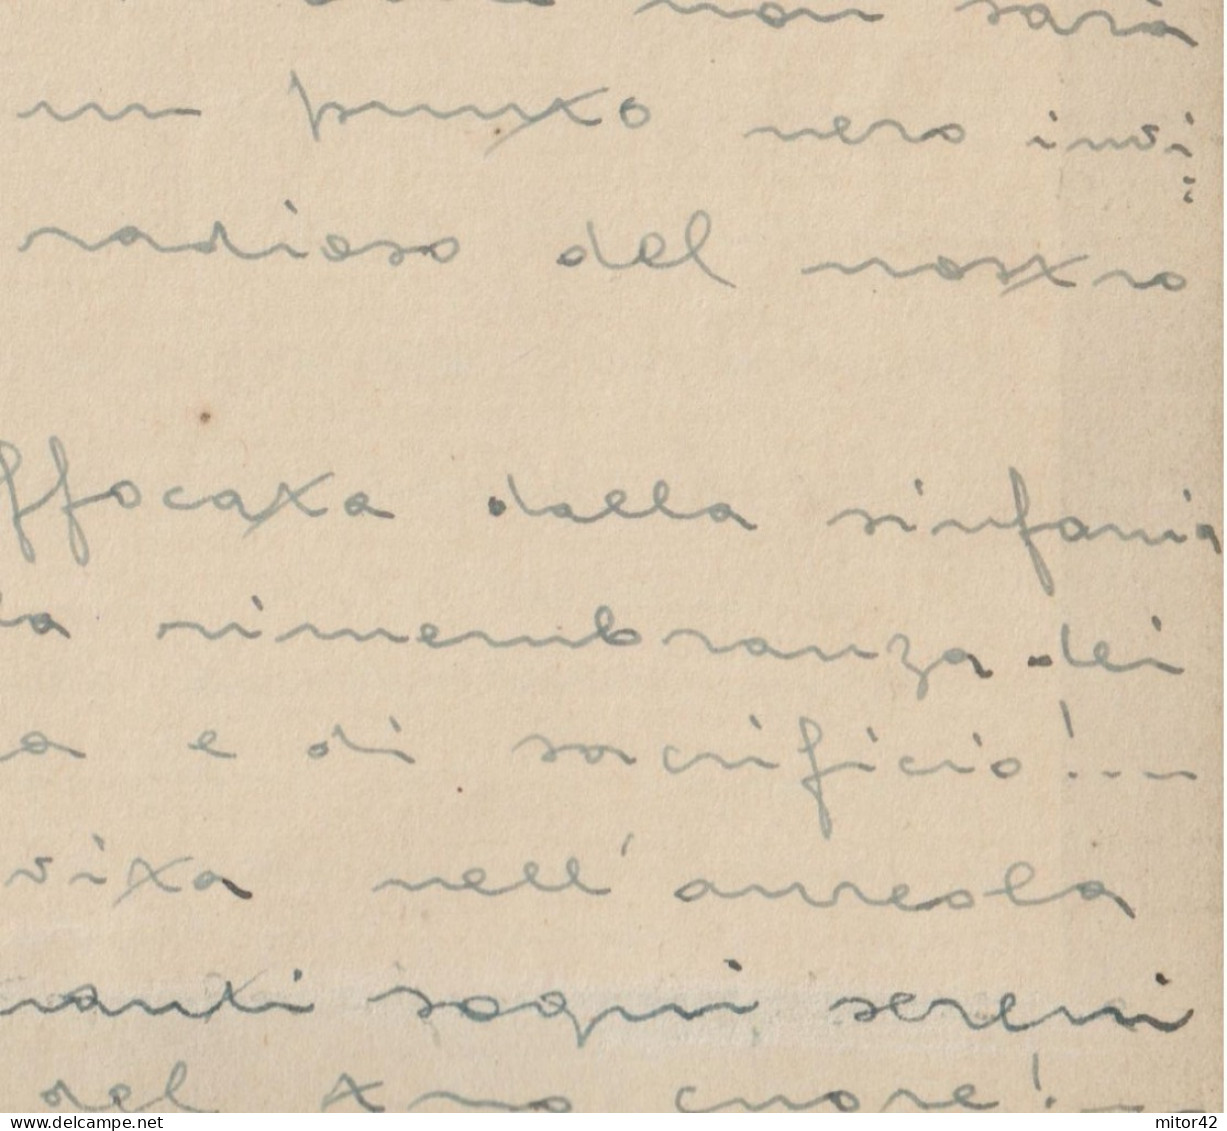 non sarà
un punto nero invi
radioso del nostro
ffocata dalla sinfonia
la rimembranza dei
a e di sacrificio!...
vita nell'aureola
ranti sogni sereni
del tuo cuore!...
delcampe.net
mitor42